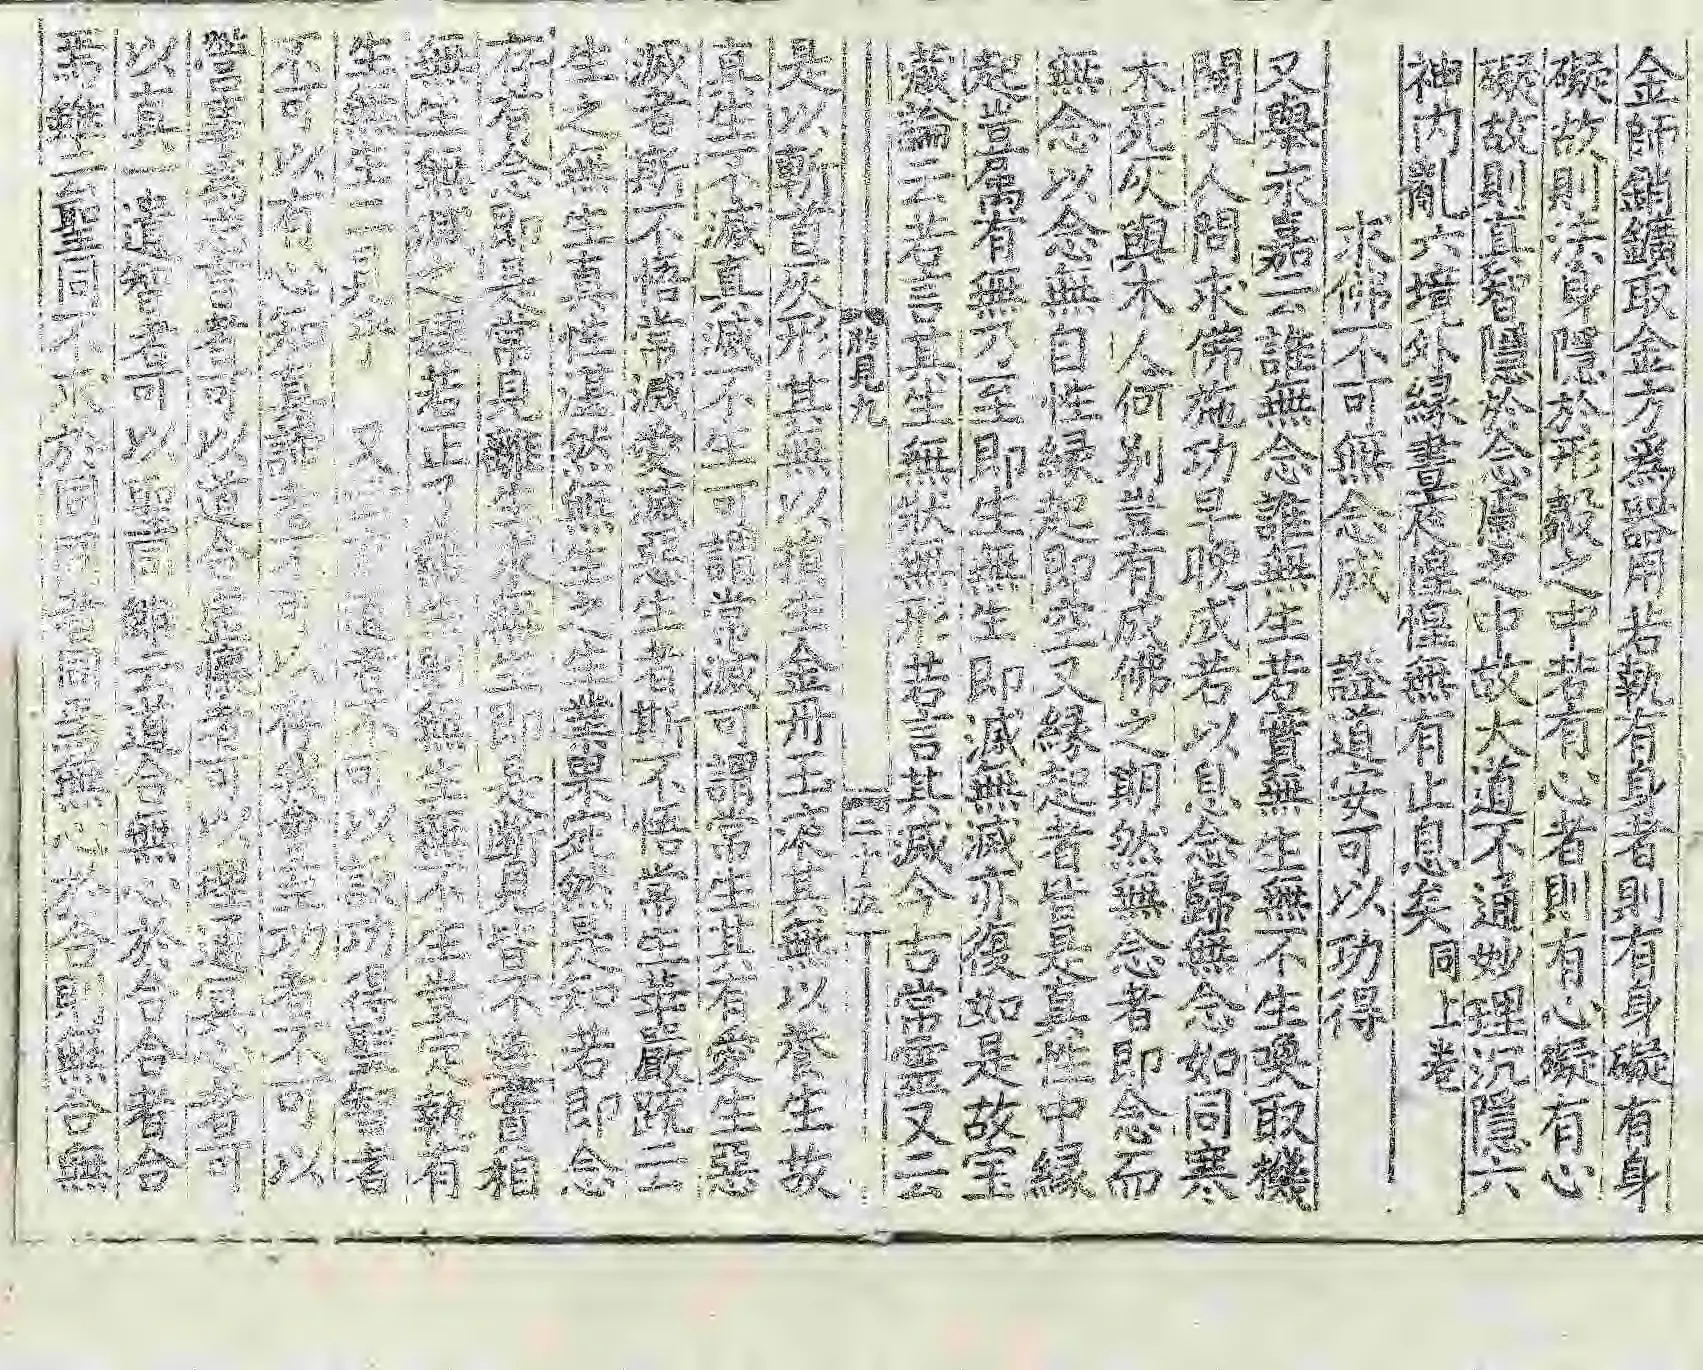 金師銷鑛取金方爲器用若執有身者則有身礙有身
礙故則法身隱於形殼之中若有心者則有心礙有心
礙故則真智隱於念慮之中故大道不通妙理沉隱六
神内亂六境外緣晝夜惶惶無有止息矣同上卷
求佛不可無念成 證道安可以功得
又舉永嘉云誰無念誰無生若實無生無不生喚取機
關木人問求佛施功早晚成若以息念歸無念如同寒
木死灰與木人何別豈有成佛之期然無念者即念而
無念以念無自性緣起即空又緣起者皆是真性中緣
起豈屬有無乃至即生無生即滅無滅亦復如是故宝
藏論云若言其生無狀無形若言其滅今古常靈又云
是以斬首灰形其無以損生金丹玉液其無以養生故
真生不滅真滅不生可謂常滅可謂常生其有愛生惡
滅者斯不悟常滅愛滅惡生者斯不悟常生華嚴疏云
生之無生真性湛然無生之生業果宛然是知若即念
存有念即是常見離生求無生即是斷見皆不達實相
無生無滅之理若正了無生則無生無不生豈定執有
生無生二見乎 又云 道者不可以設功得聖智者
不可以有心知真諦者不可以存我會至功者不可以
營事爲 可以道合 者可以理通 者可
以真一 遺智者可以聖同 雖云道合無心於合合者合
焉雖云聖同不求於同同者同焉無心於合則無合無